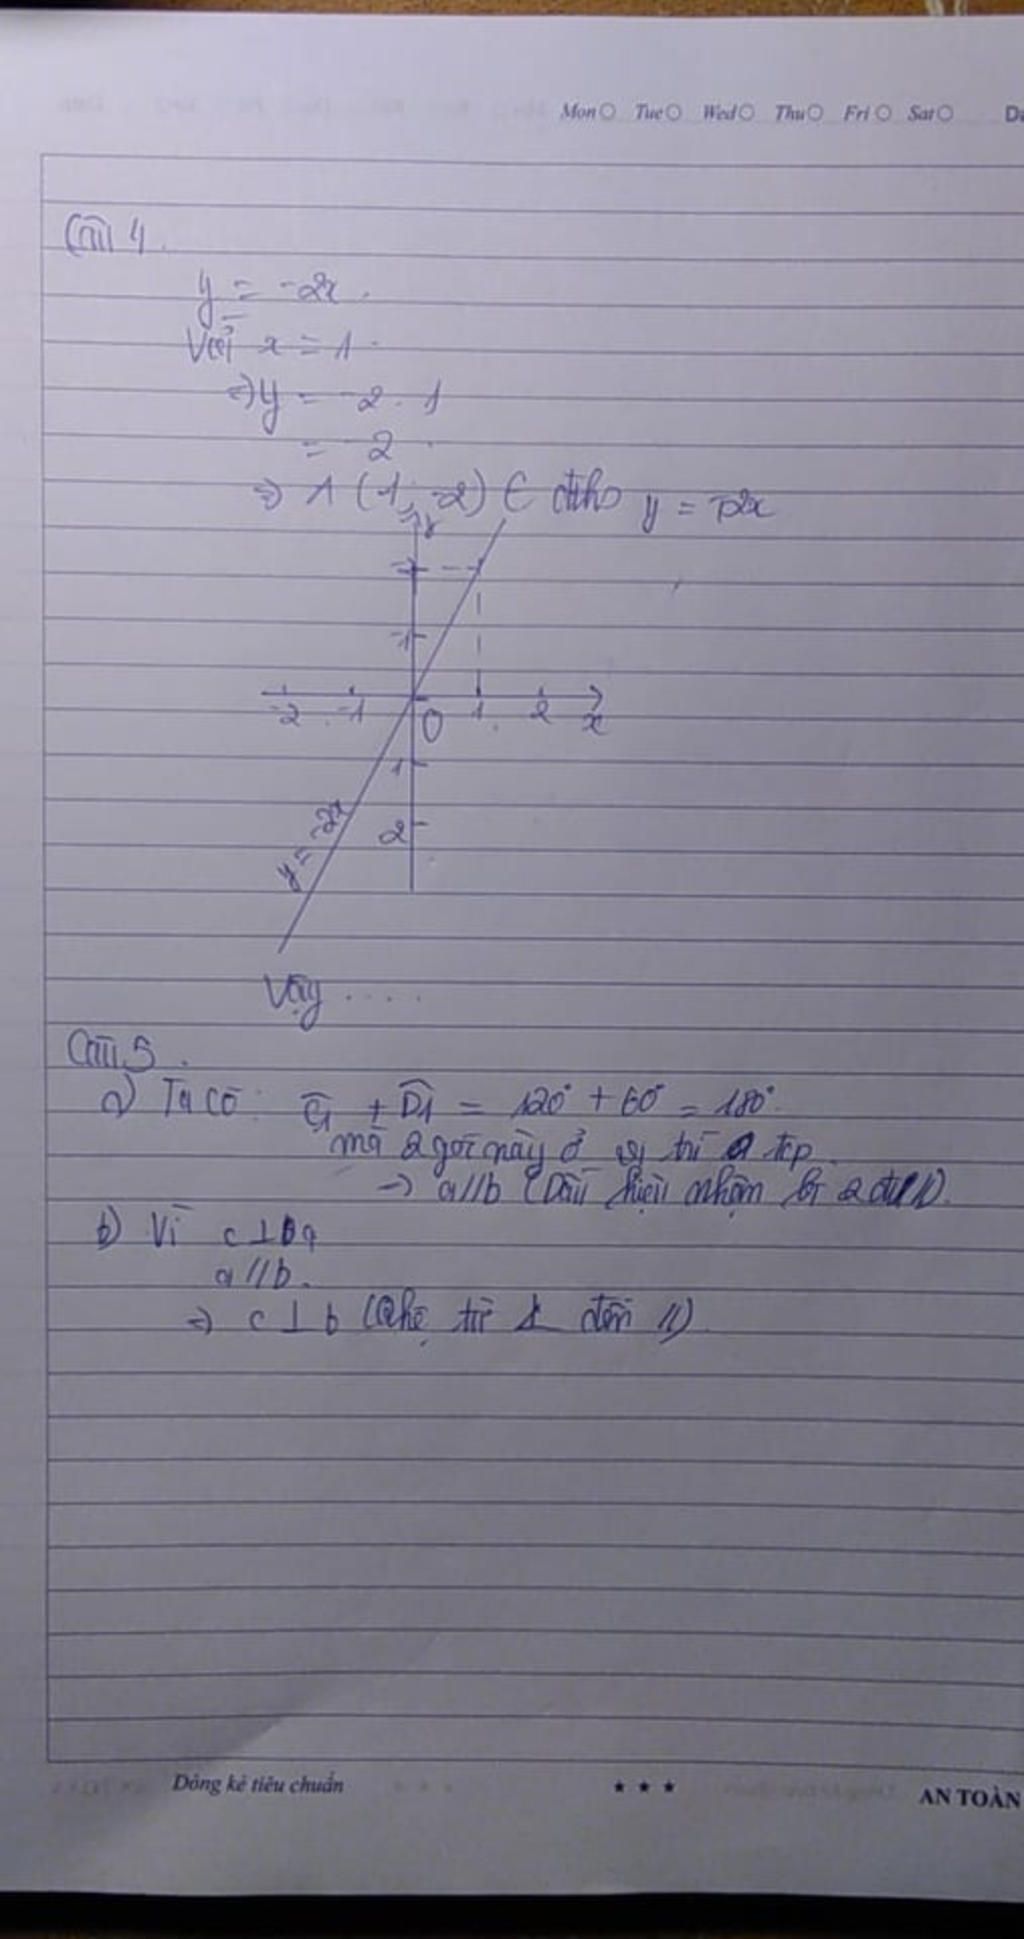 Mon Tue Wed Thu Fri Sat Da
Câu 4.
y = -2x.
Với x = 1.
=> y = -2 . 1
= -2.
=> A (1; -2) ∈ đths y = -2x
y
-2
-1
-2 -1 O 1 2 x
1
2
y = -2x
Vậy ....
Câu 5.
a) Ta có: C1 + D1 = 120° + 60° = 180°.
mà 2 góc này ở vị trí tcp
-> a//b (Dấu hiệu nhận bt 2 đt //).
b) Vì c⊥ a
a//b.
=> c ⊥ b (Qhệ từ ⊥ đến //)
Dòng kẻ tiêu chuẩn ★ ★ ★ AN TOÀN